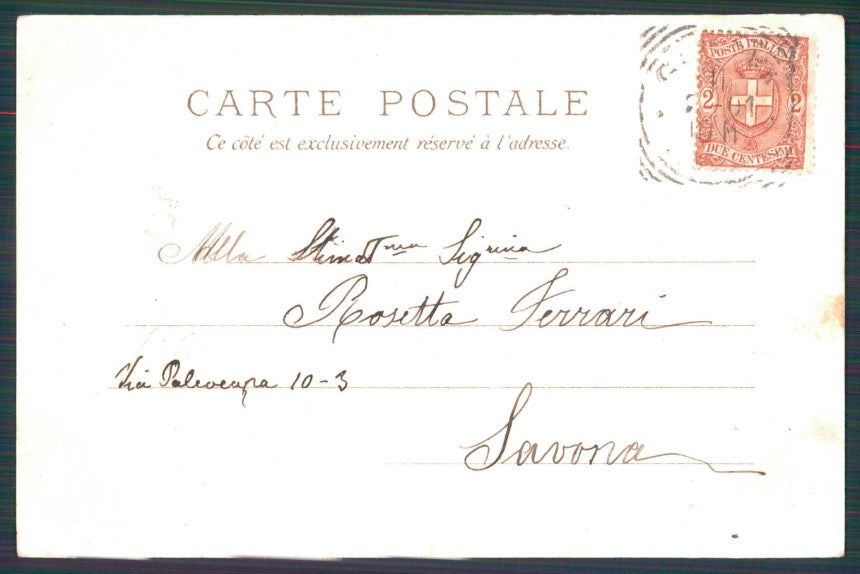 CARTE POSTALE
Ce côté est exclusivement réservé à l'adresse.
POSTE ITALIANE
2 2
DUE CENTESIMI
01
10 M
Alla Stimatma Sigrina
Rosetta Ferrari
Via Paleocapa 10-3
Savona